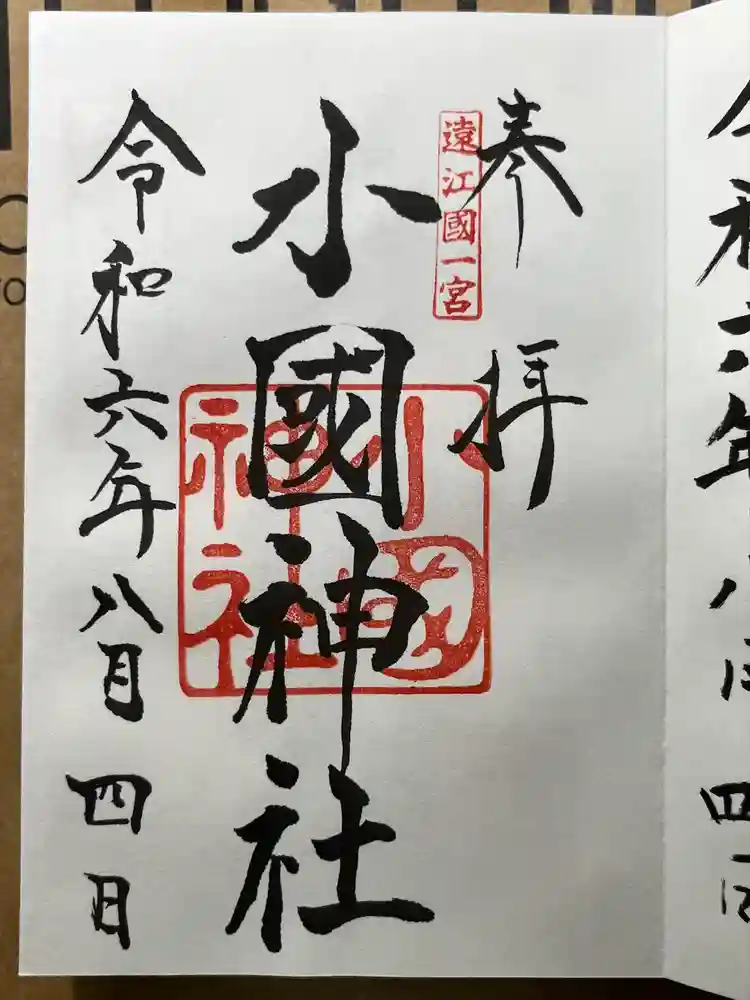 奉拝
遠江國一宮
小國神社
小國神社
令和六年八月四日
令和六年八月四日